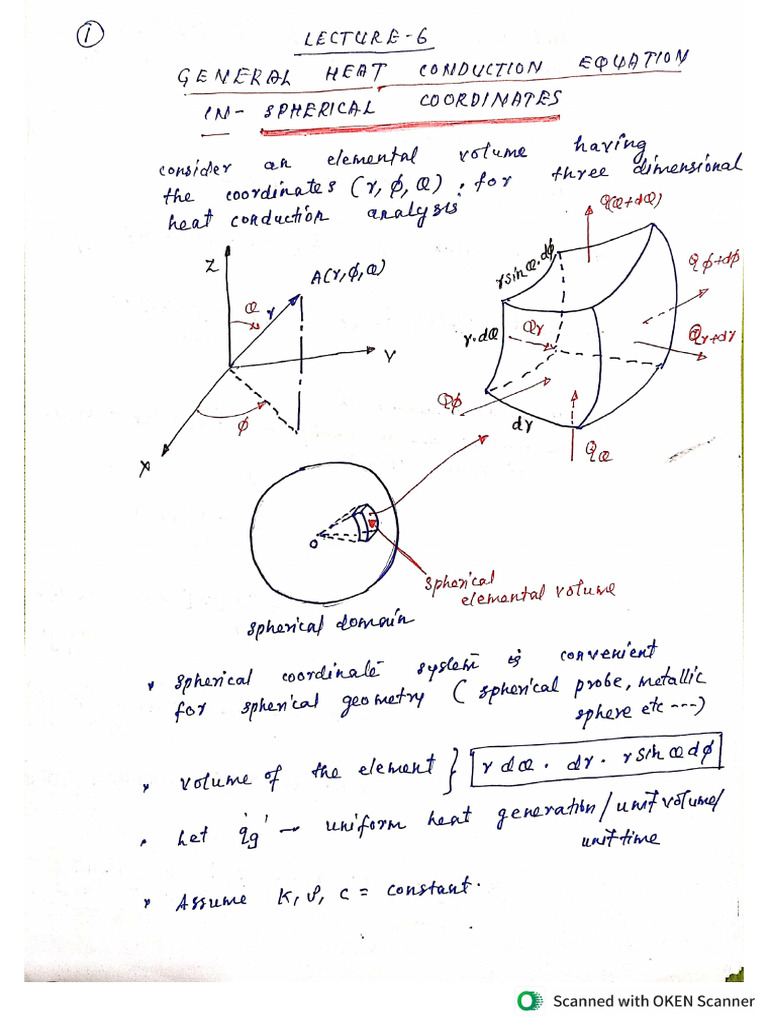 1
LECTURE-6
GENERAL HEAT CONDUCTION EQUATION
IN- SPHERICAL COORDINATES
consider an elemental volume having
the coordinates (r, φ, θ), for three dimensional
heat conduction analysis
Q(θ+dθ)
Z
A(r, φ, θ)
r sinθ.dφ
Qφ+dφ
θ
r
r.dθ
Qr
Qr+dr
Y
φ
Qφ
dr
X
Qθ
O
spherical
elemental volume
spherical domain
* spherical coordinate system is convenient
for spherical geometry ( spherical probe, metallic
sphere etc ---)
* volume of the element } r dθ . dr. r sinθ dφ
• Let 'qg' → uniform heat generation/unit volume/
unit time
* Assume K, ρ, c = constant.
Scanned with OKEN Scanner